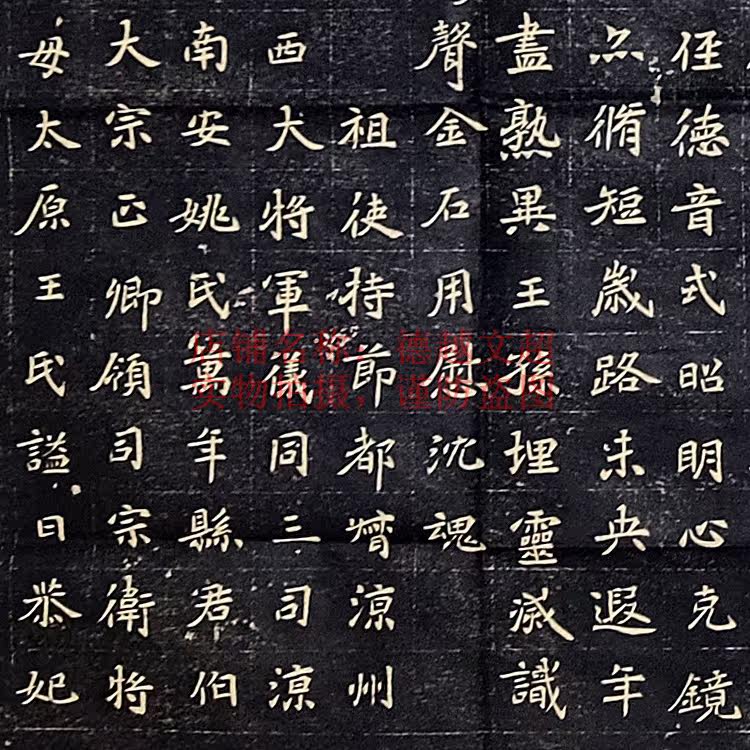 德音式昭明心克鏡
脩短歲路未央遐年
盡熟異王孫埋靈識
聲金石用慰沈魂
祖使持節都督涼州
西大將軍儀同三司涼
南安姚氏萬年縣君伯
大宗正卿領司宗衛將
母太原王氏謚曰恭妃
店铺名称：德越文超
实物拍摄，谨防盗图